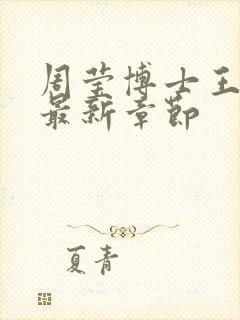 周莹博士王
最新章节
夏青